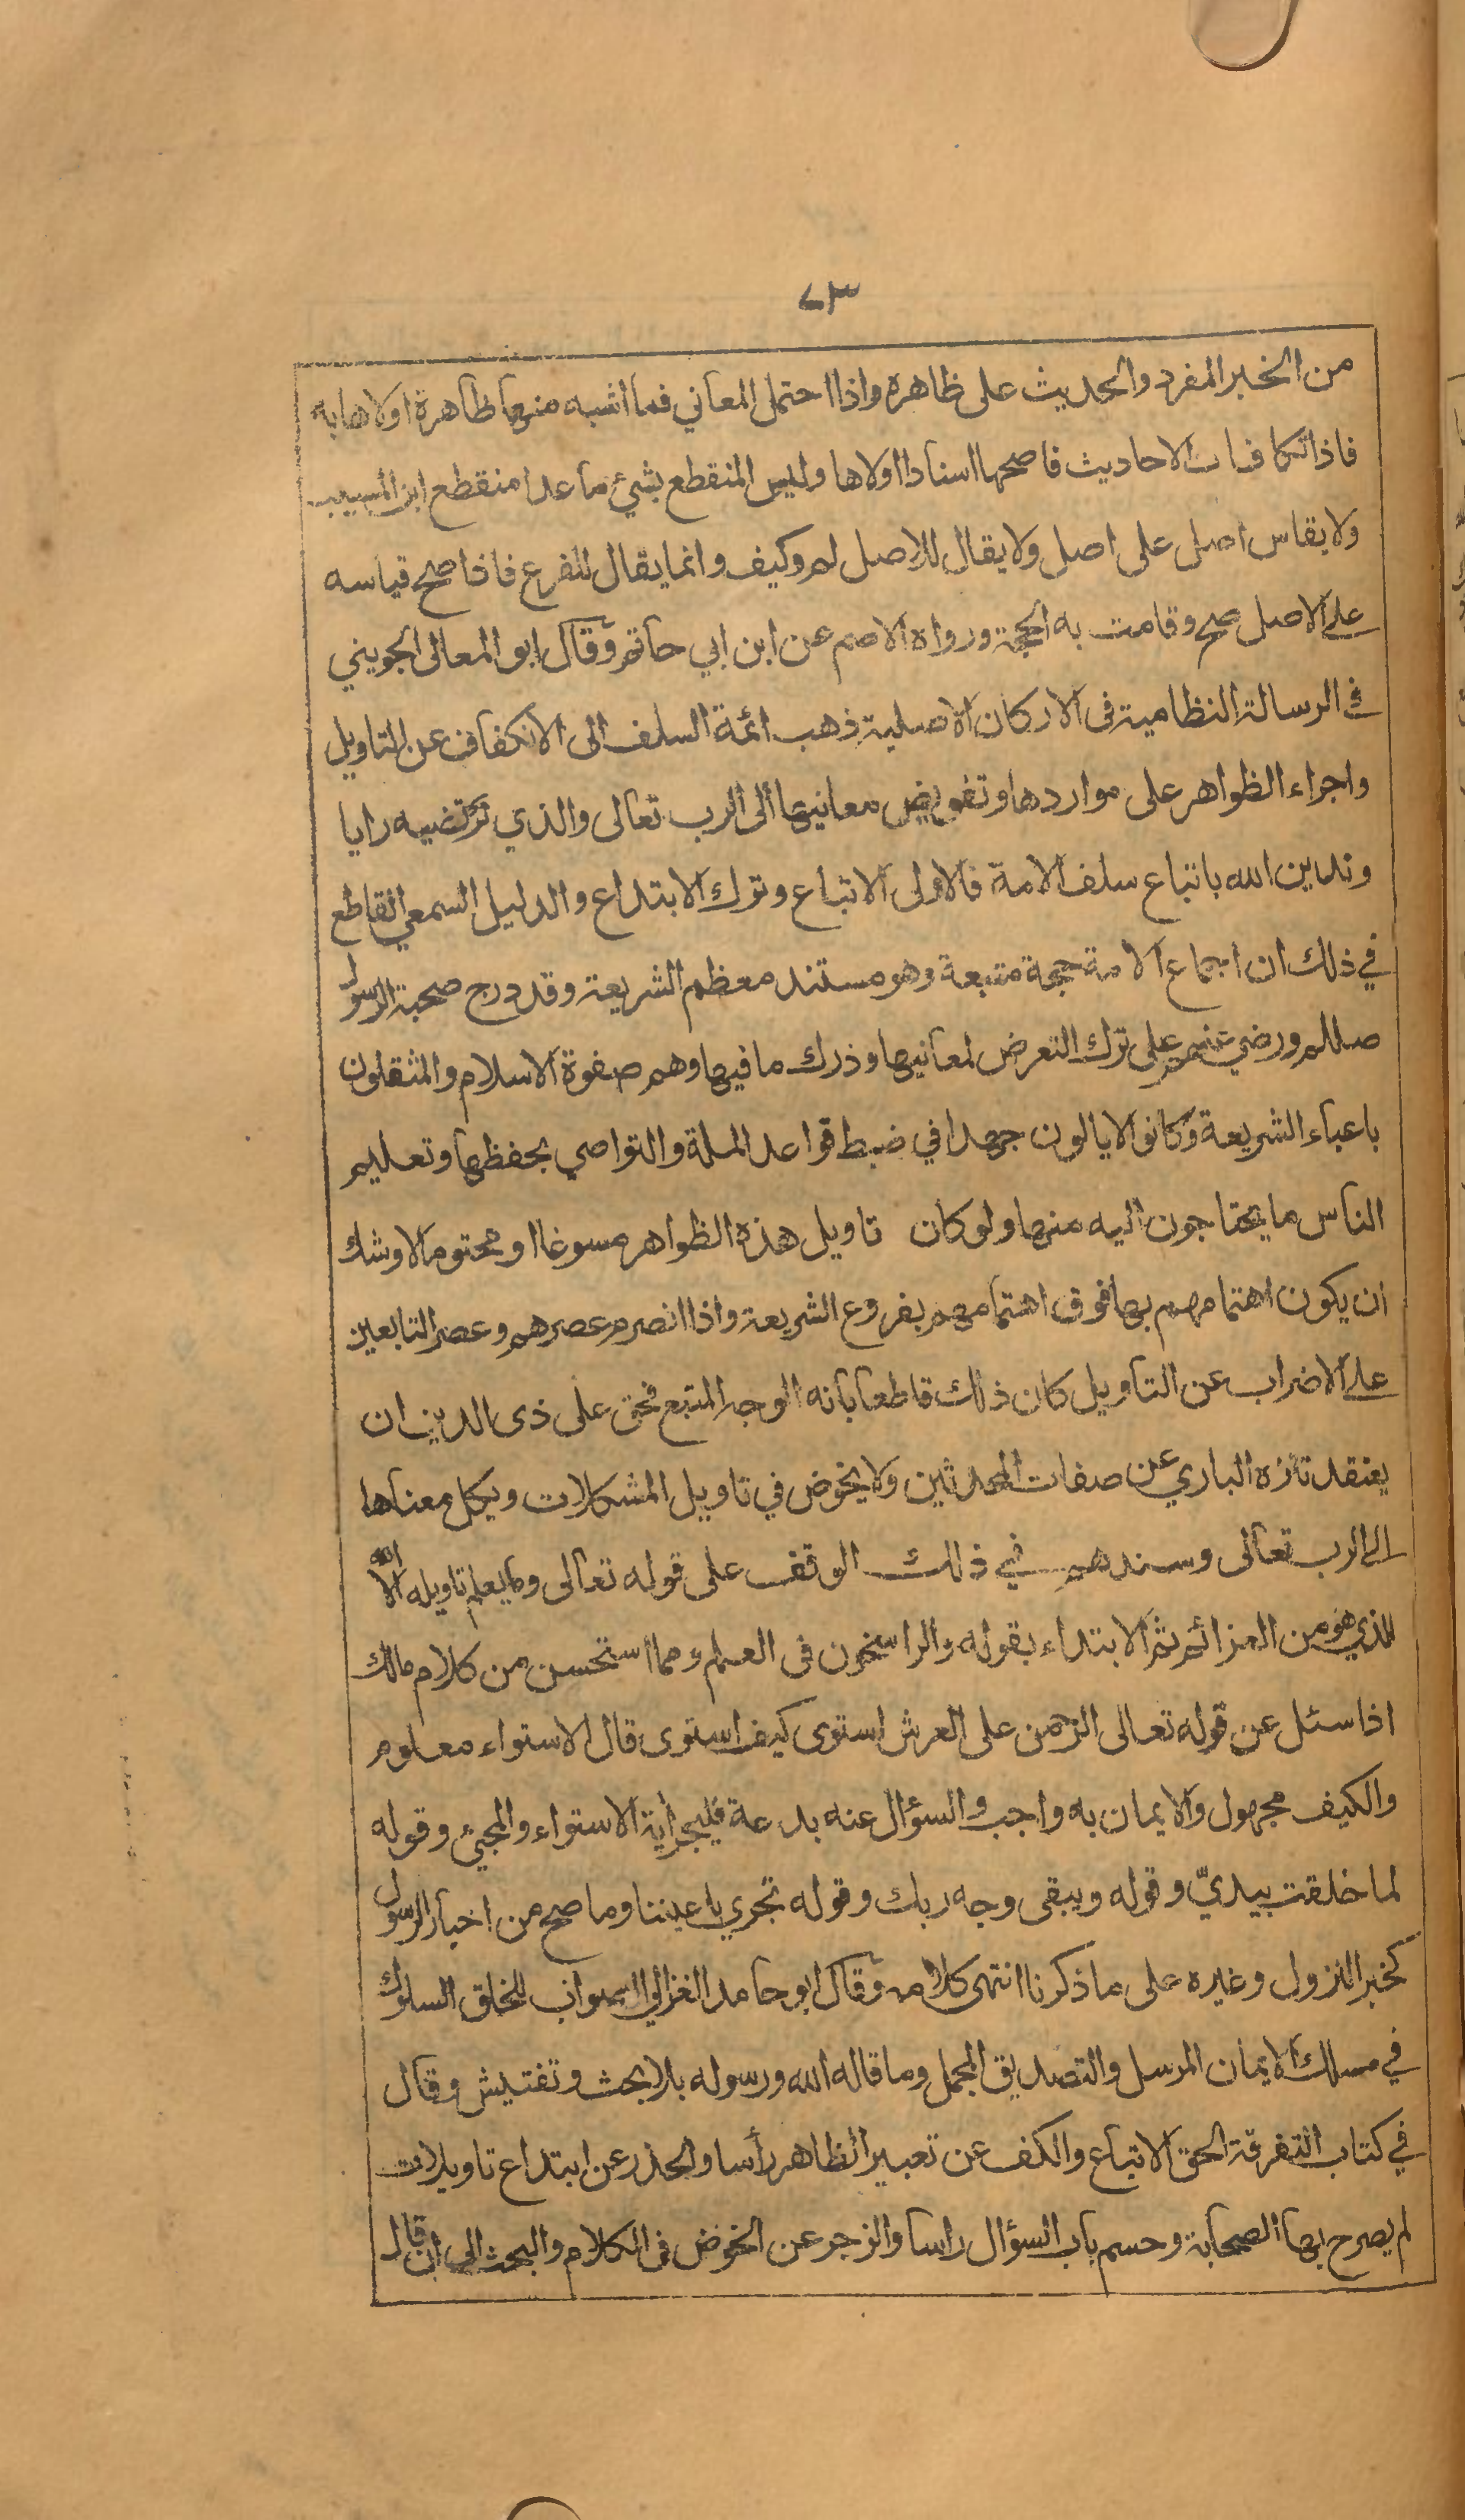 ٧٣
من الخبر المفرد والحديث على ظاهره واذا احتمل المعاني فما اشبه منها ظاهرة اولاها به
فاذا تكافات الاحاديث فاصحها اسنادا اولاها وليس المنقطع بشيئ ما عدا منقطع ابن المسيب
ولا يقاس اصل على اصل ولا يقال للاصل لم وكيف وانما يقال للفرع فاذا صح قياسه
على الاصل صح وقامت به الحجة ورواه الاصم عن ابن ابي حاتم وقال ابو المعالى الجويني
في الرسالة النظامية فى الاركان الاصلية ذهب ائمة السلف الى الانكفاف عن التاويل
واجراء الظواهر على مواردها وتفويض معانيها الى الرب تعالى والذي نرتضيه رايا
وندين الله باتباع سلف الامة فالاولى الاتباع وترك الابتداع والدليل السمعي القاطع
في ذلك ان اجماع الامة حجة متبعة وهو مستند معظم الشريعة وقد درج صحبة الرسول
صللم ورضي عنهم على ترك التعرض لمعانيها وذرك ما فيها وهم صفوة الاسلام والمثقلون
باعباء الشريعة وكانوا لا يالون جهدا في ضبط قواعد الملة والتواصي بحفظها وتعليم
الناس ما يحتاجون اليه منها ولو كان تاويل هذه الظواهر مسوغا او محتوما لاوشك
ان يكون اهتمامهم بها فوق اهتمامهم بفروع الشريعة واذا انصرم عصرهم وعصر التابعين
على الاضراب عن التاويل كان ذلك قاطعا بانه الوجه المتبع فحق على ذى الدين ان
يعتقد تنزه الباري عن صفات المحدثين ولا يخوض في تاويل المشكلات ويكل معناها
الى الرب تعالى وسندهم في ذلك الوقف على قوله تعالى وما يعلم تاويله الا الله
الذي هو من العزائم ثم الابتداء بقوله والراسخون فى العلم ومما استحسن من كلام مالك
اذا سئل عن قوله تعالى الرحمن على العرش استوى كيف استوى قال الاستواء معلوم
والكيف مجهول والايمان به واجب والسؤال عنه بدعة فليجر أية الاستواء والمجيئ وقوله
لما خلقت بيديّ وقوله ويبقى وجه ربك وقوله تجري باعيننا وما صح من اخبار الرسول
كخبر النزول وغيره على ما ذكرنا انتهى كلامه وقال ابو حامد الغزالي الصواب للخلق السلوك
في مسلك الايمان المرسل والتصديق المجمل وما قاله الله ورسوله بلا بحث وتفتيش وقال
في كتاب التفرقة الحق الاتباع والكف عن تعبير الظاهر رأسا والحذر عن ابتداع تاويلات
لم يصرح بها الصحابة وحسم باب السؤال راسا والزجر عن الخوض فى الكلام والبحث الى ان قال